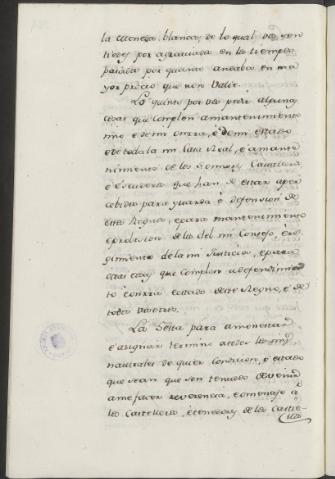 la moneda blanca, de lo qual vos sen
tiedes por agraviada en los tiempos
pasados por quanto andaba en ma
yor precio que non valie.
Lo quinto por vos pedir algunas
cosas que complen a mantenimiento
mio e de mi
e de toda la mi Casa Real, e a mante
nimiento de los Cavalleros
e Escuderos que han de estar aper
cebidos para guarda e defension de
estos Regnos, e para mantenimiento
e provision de los del mi Consejo, e re
gimiento de la mi Justicia, e para
otras cosas que complen a defendimien
to e estado deste Regno, e de
todos vosotros.
La Sesta para amonestar
e asignar termino a todos los mis
naturales de qualquier condicion, e estado
que sean que son tenudos de venir
a me facer reverencia, e omenaje a
los Castelleros, e tenedores de los Casti-
llos